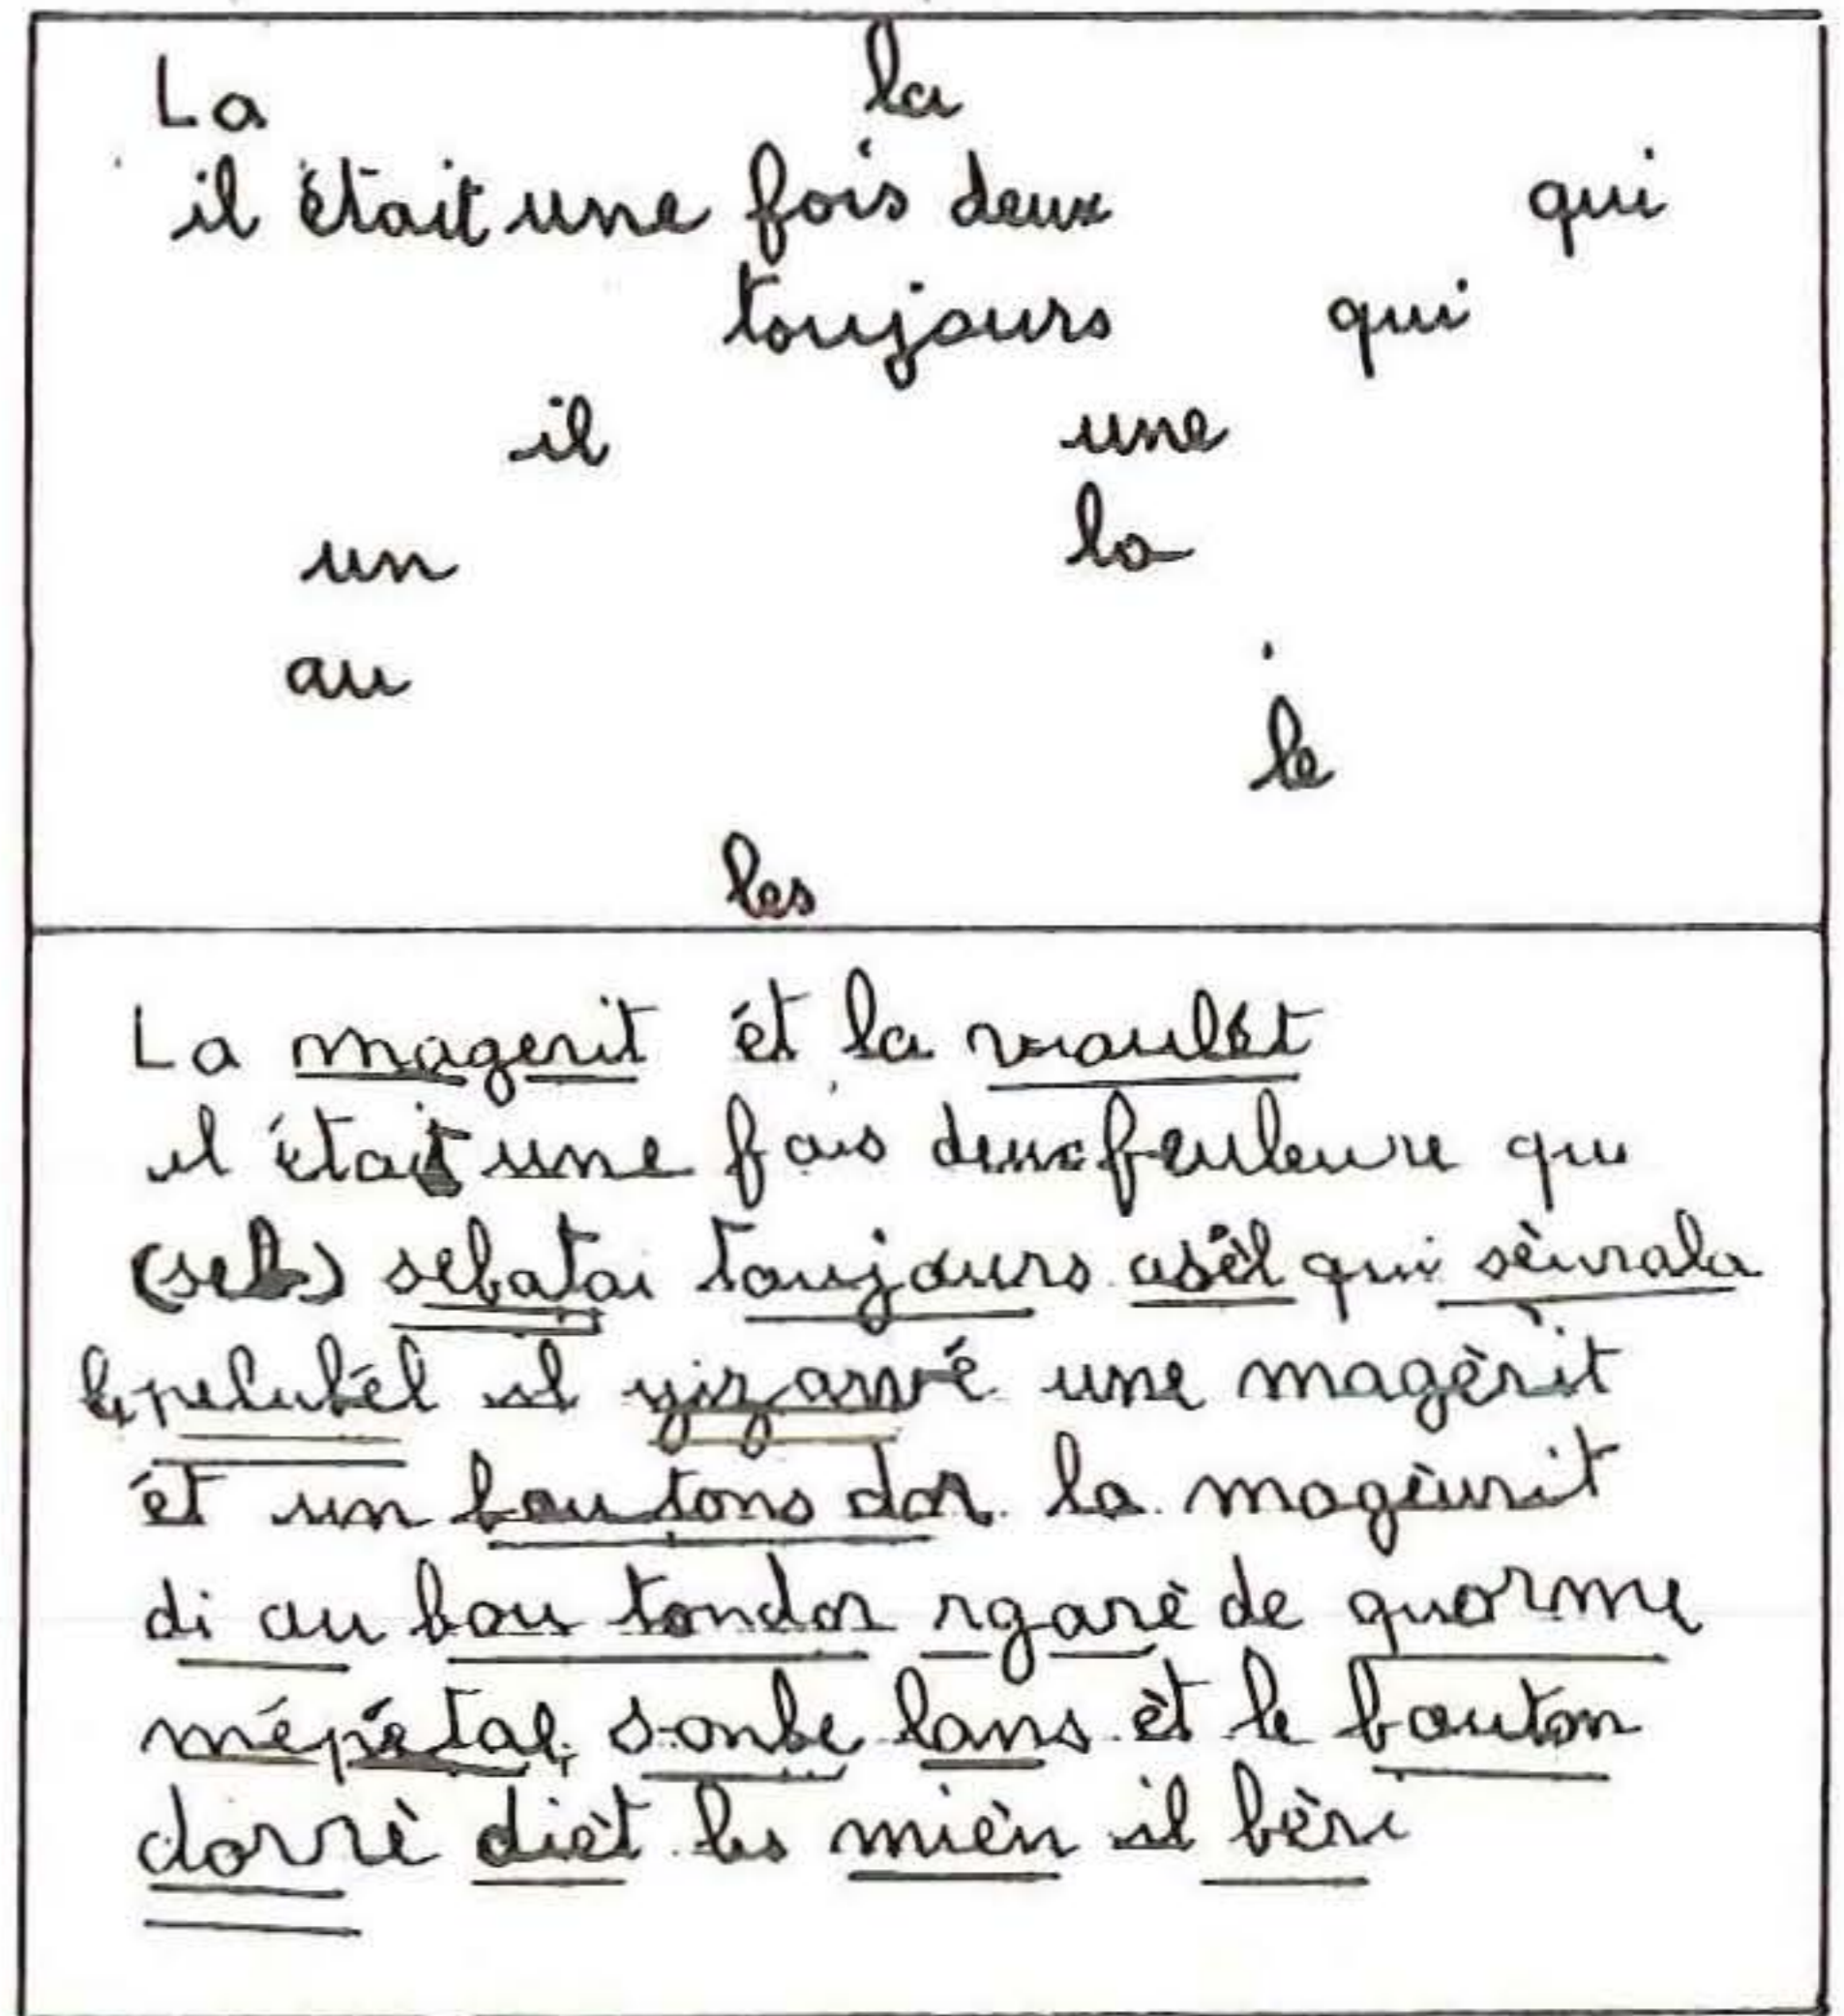 La la
il était une fois deux qui
toujours qui
il une
un la
au
le
les
La magerit ét la viaulèt
il était une fois deux feuleure qui
(seb) sebatai toujours asèl qui sèurala
lepelubèl il yizarivé une magèrit
ét un boutons dor la magèurit
di au bou tondor rgarè de quorme
mépétal sonbe lans èt le bouton
dorrè dièt les mièn il bèri